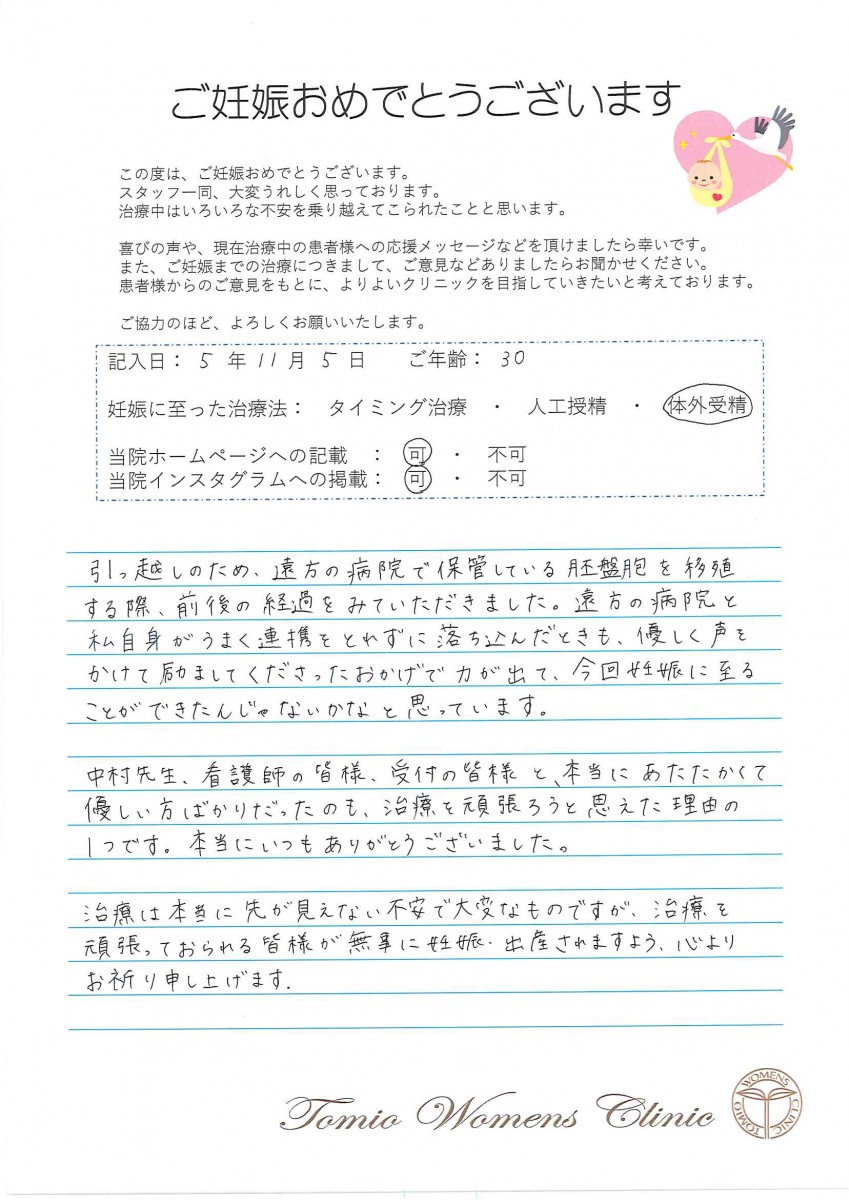 ご妊娠おめでとうございます
この度は、ご妊娠おめでとうございます。
スタッフ一同、大変うれしく思っております。
治療中はいろいろな不安を乗り越えてこられたことと思います。
喜びの声や、現在治療中の患者様への応援メッセージなどを頂けましたら幸いです。
また、ご妊娠までの治療につきまして、ご意見などありましたらお聞かせください。
患者様からのご意見をもとに、よりよいクリニックを目指していきたいと考えております。
ご協力のほど、よろしくお願いいたします。
記入日： 5 年 11 月 5 日 ご年齢： 30
妊娠に至った治療法： タイミング治療 ・ 人工授精 ・ 体外受精
当院ホームページへの記載 ： 可 ・ 不可
当院インスタグラムへの掲載： 可 ・ 不可
引っ越しのため、遠方の病院で保管している胚盤胞を移殖
する際、前後の経過をみていただきました。遠方の病院と
私自身がうまく連携をとれずに落ち込んだときも、優しく声を
かけて励ましてくださったおかげで力が出て、今回妊娠に至る
ことができたんじゃないかなと思っています。
中村先生、看護師の皆様、受付の皆様と、本当にあたたかくて
優しい方ばかりだったのも、治療を頑張ろうと思えた理由の
1つです。本当にいつもありがとうございました。
治療は本当に先が見えない不安で大変なものですが、治療を
頑張っておられる皆様が無事に妊娠・出産されますよう、心より
お祈り申し上げます.
Tomio Womens Clinic
TOMIO WOMENS CLINIC